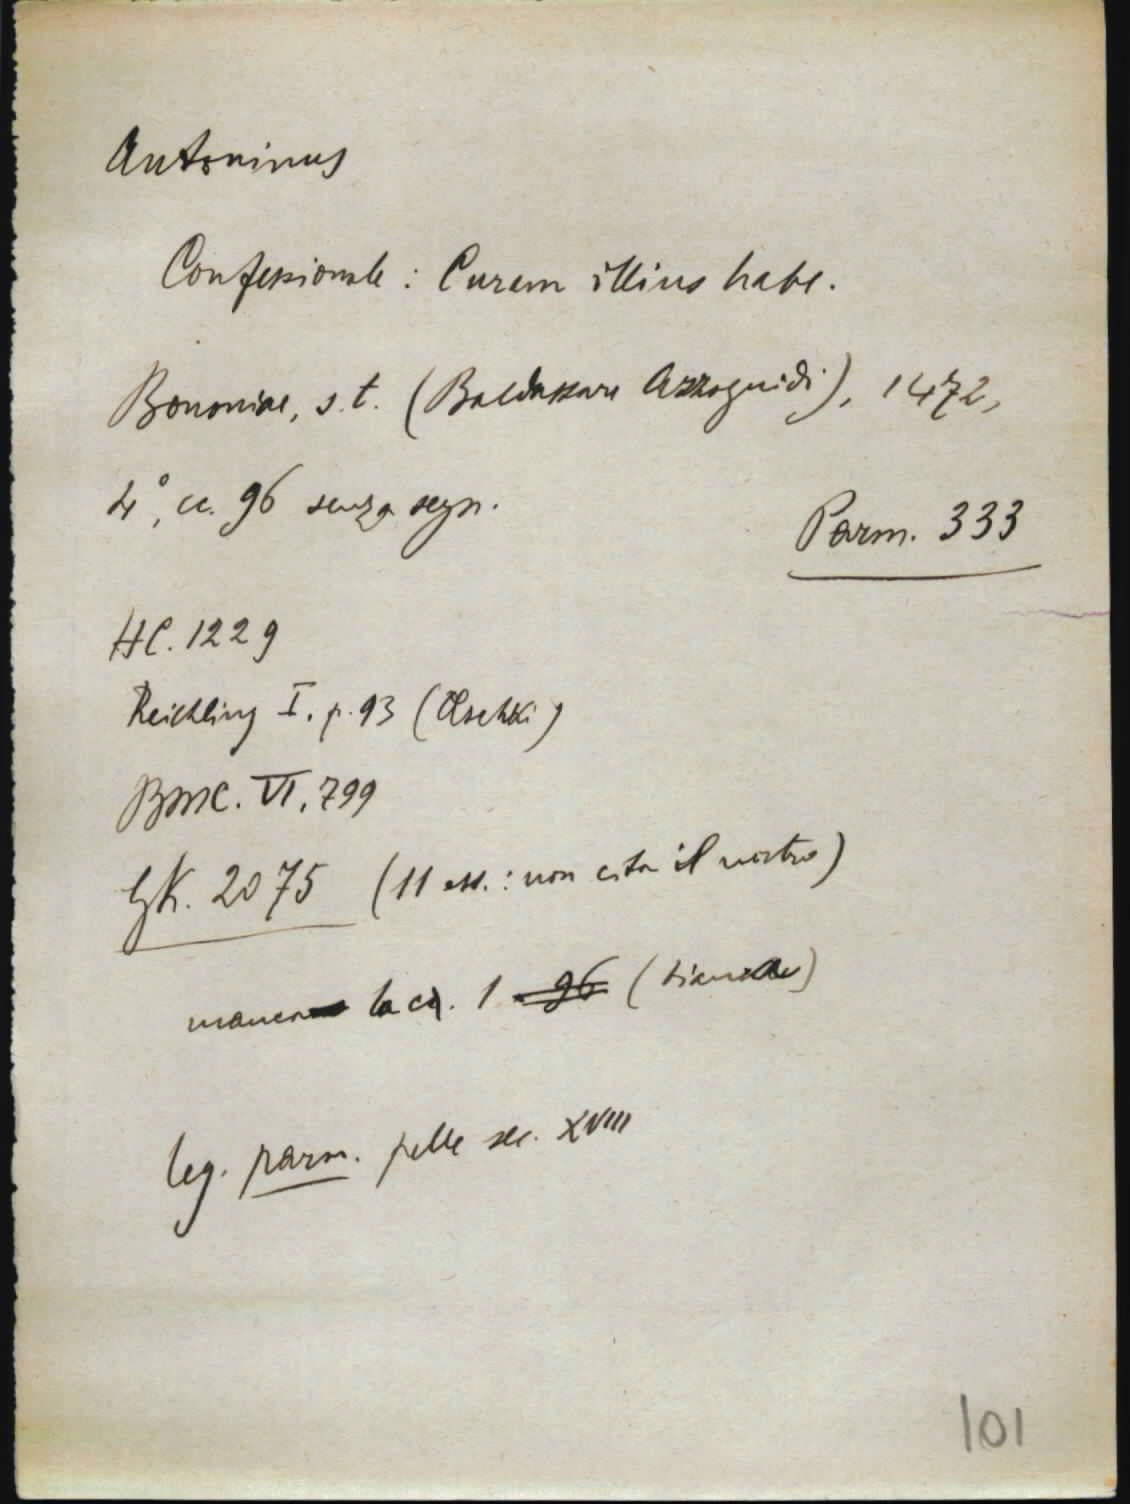 Antoninus
Confessionale : Curam illius habe.
Bononiae, s. t. (Baldassare Azzoguidi), 1472,
4°, cc. 96 senza segn.
Parm. 333
HC. 1229
Reichling I. p. 93 (Olschki)
BMC. VI, 799
GK. 2075 (11 es. : non cita il nostro)
manca la c. 1 96 (bianca)
leg. parm. pelle sec. XVIII
101